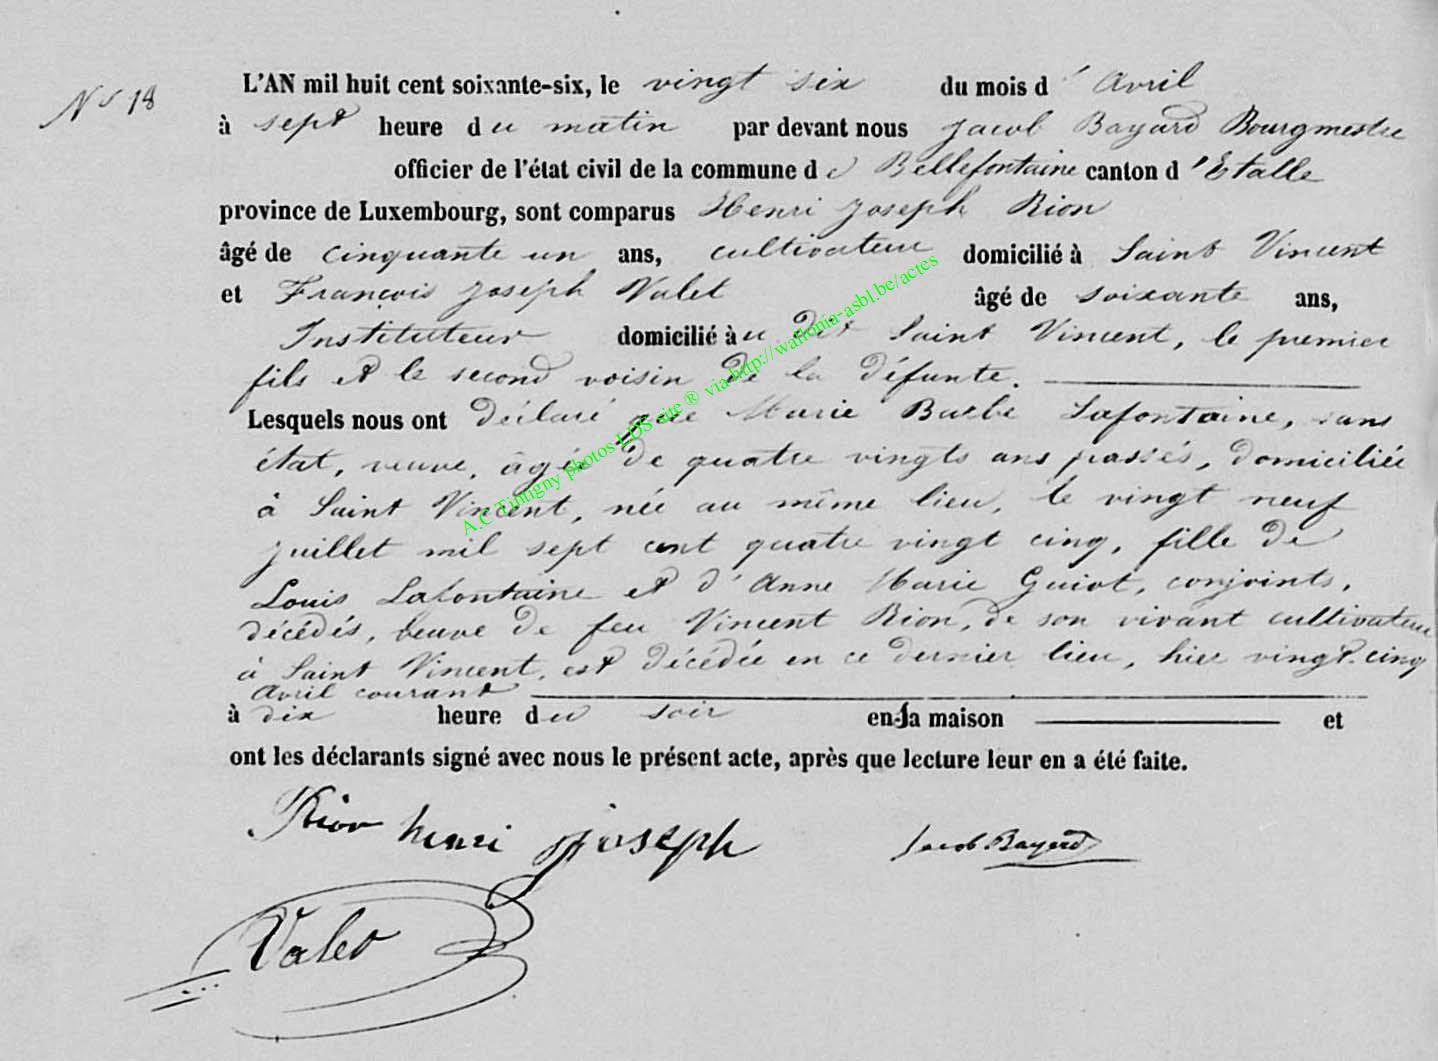 No 18
L'AN mil huit cent soixante-six, le vingt six du mois d'Avril
à sept heure du matin par devant nous Jacob Bayard Bourgmestre
officier de l'état civil de la commune de Bellefontaine canton d'Etalle
province de Luxembourg, sont comparus Henri Joseph Rion
âgé de cinquante un ans, cultivateur domicilié à Saint Vincent
et François Joseph Valet âgé de soixante ans,
Instituteur domicilié àu dit Saint Vincent, le premier
fils et le second voisin de la défunte.
Lesquels nous ont déclaré que Marie Barbe Lafontaine, sans
état, veuve, âgée de quatre vingts ans passés, domiciliée
à Saint Vincent, née au même lieu, le vingt neuf
juillet mil sept cent quatre vingt cinq, fille de
Louis Lafontaine et d'Anne Marie Guiot, conjoints,
décédés, veuve de feu Vincent Rion, de son vivant cultivateur
à Saint Vincent, est décédée en ce dernier lieu, hier vingt-cinq
Avril courant
à dix heure du soir en sa maison et
ont les déclarants signé avec nous le présent acte, après que lecture leur en a été faite.
Rion henri joseph Jacob Bayard
Valet
A.C Tintigny photos LDS site ® via http://wallonia-asbl.be/actes